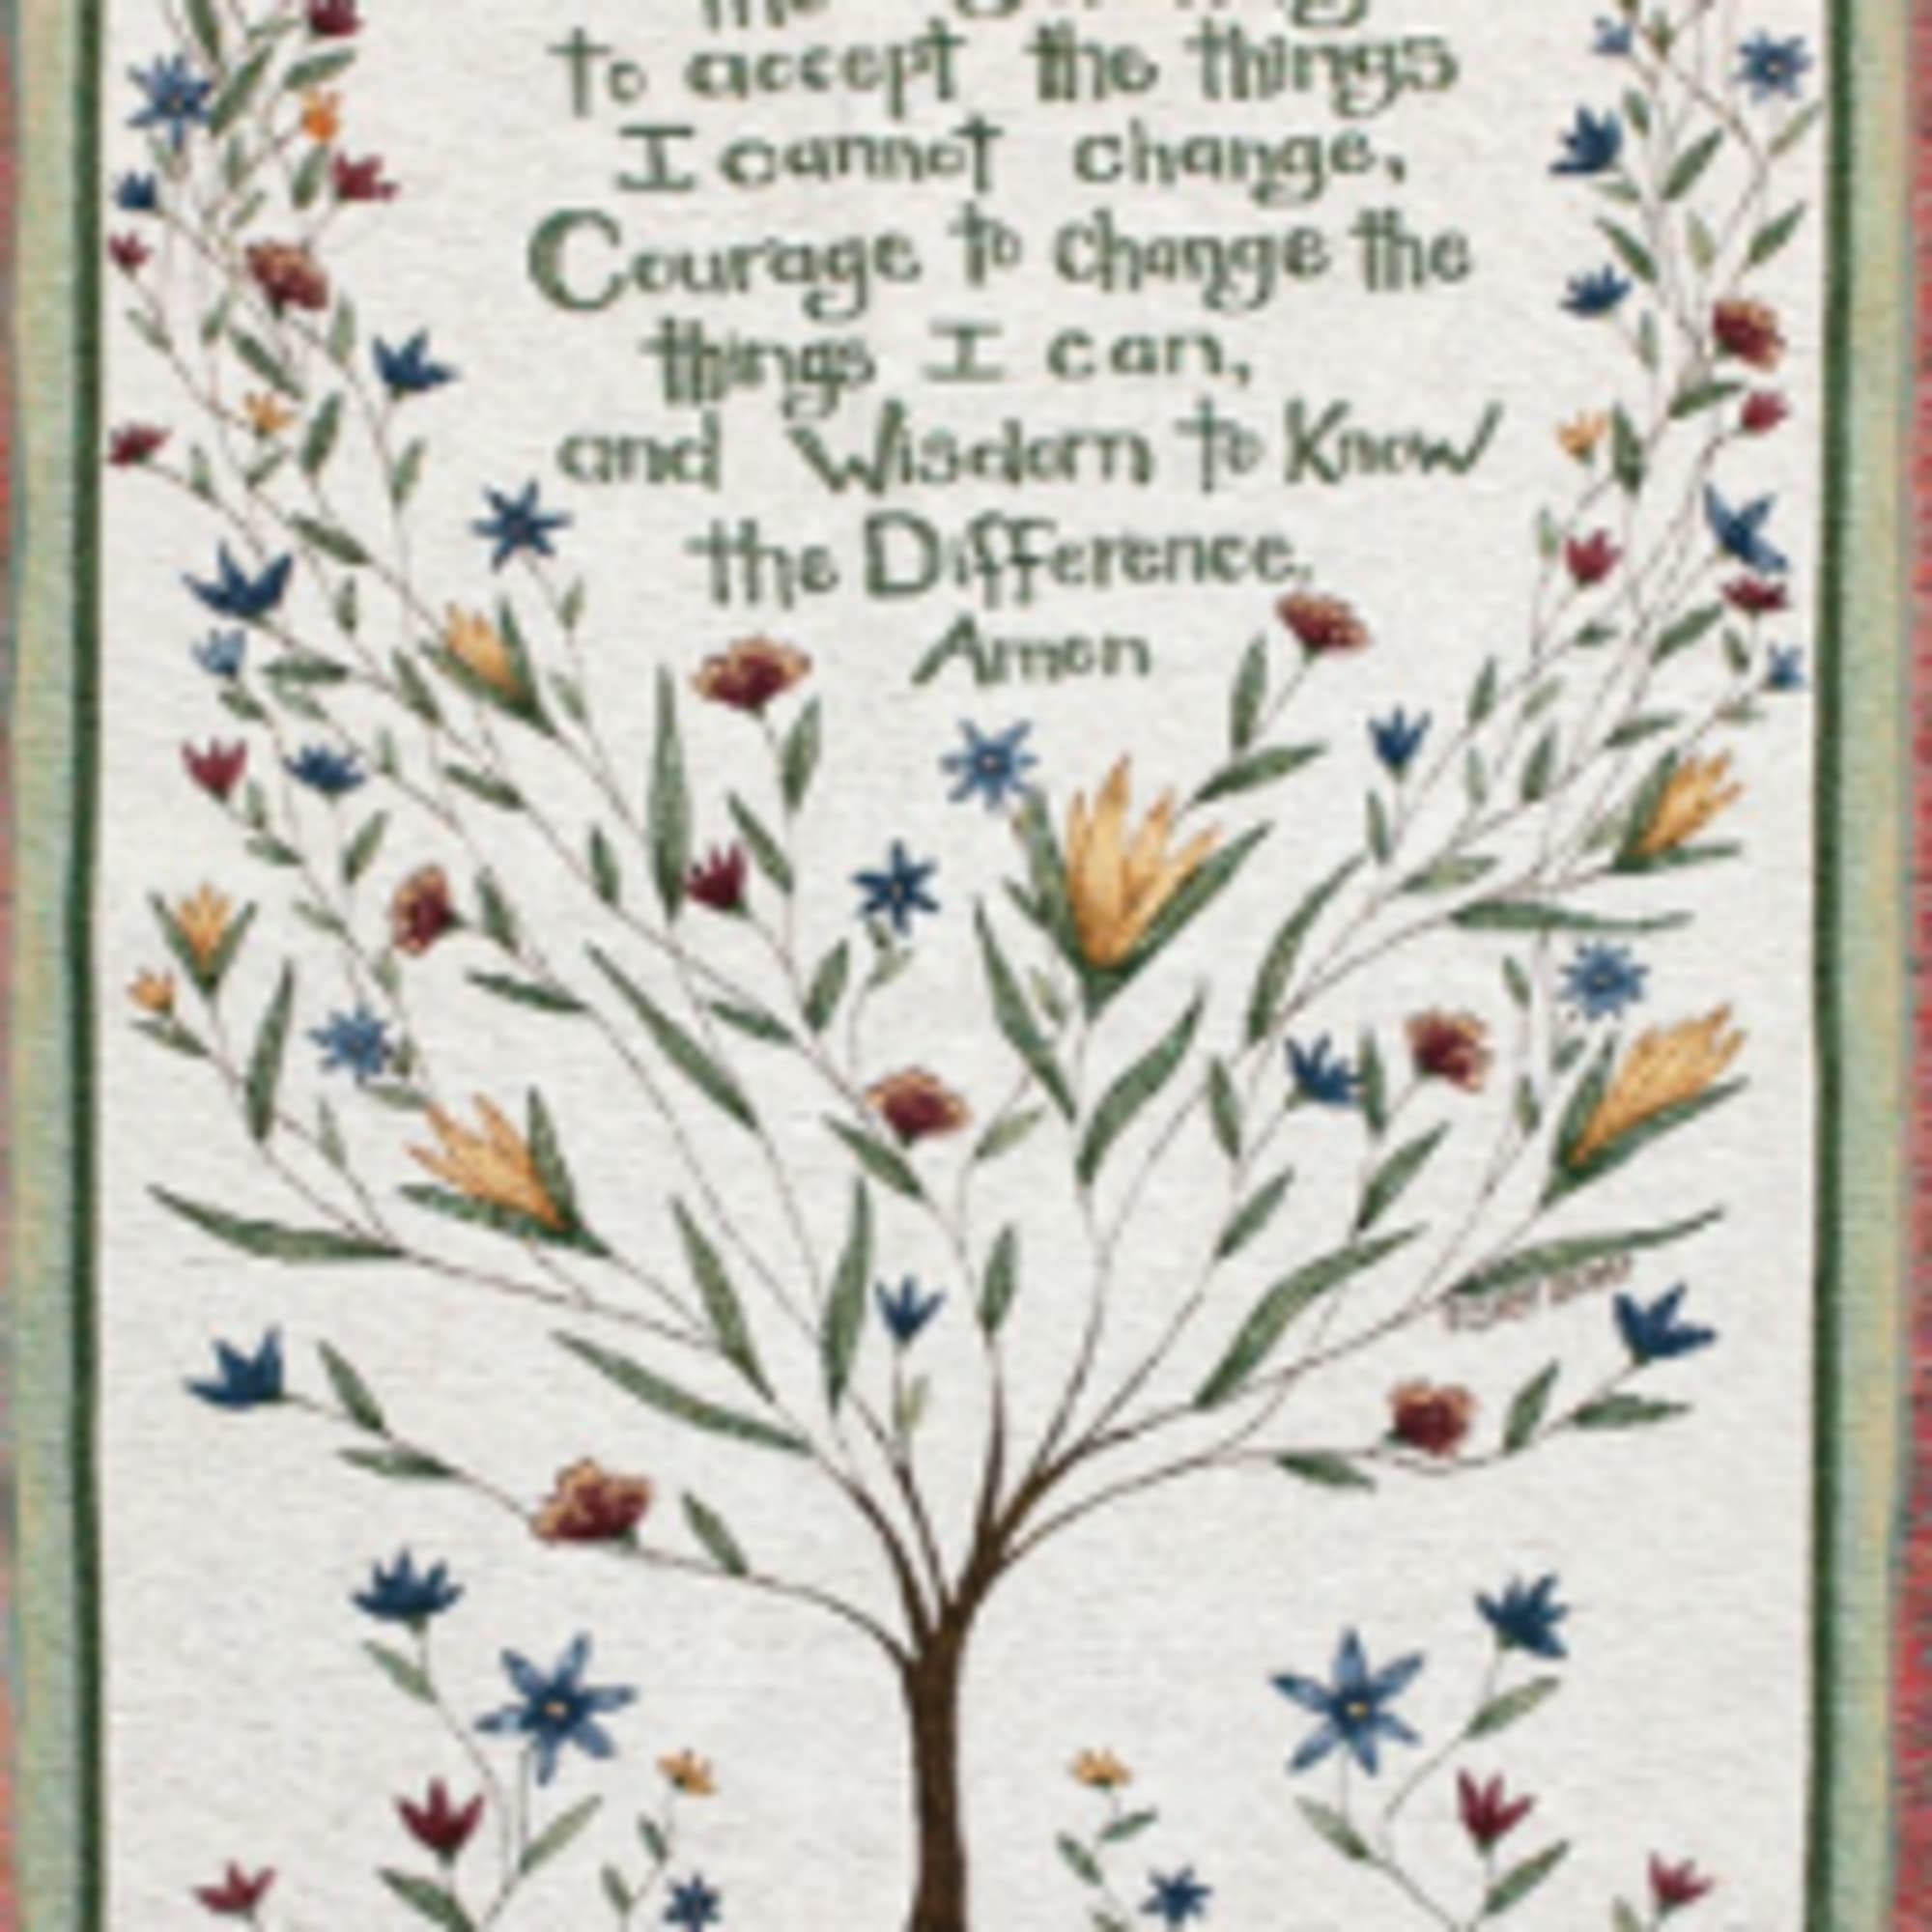 to accept the things
I cannot change,
Courage to change the
things I can,
and Wisdom to Know
the Difference.
Amen